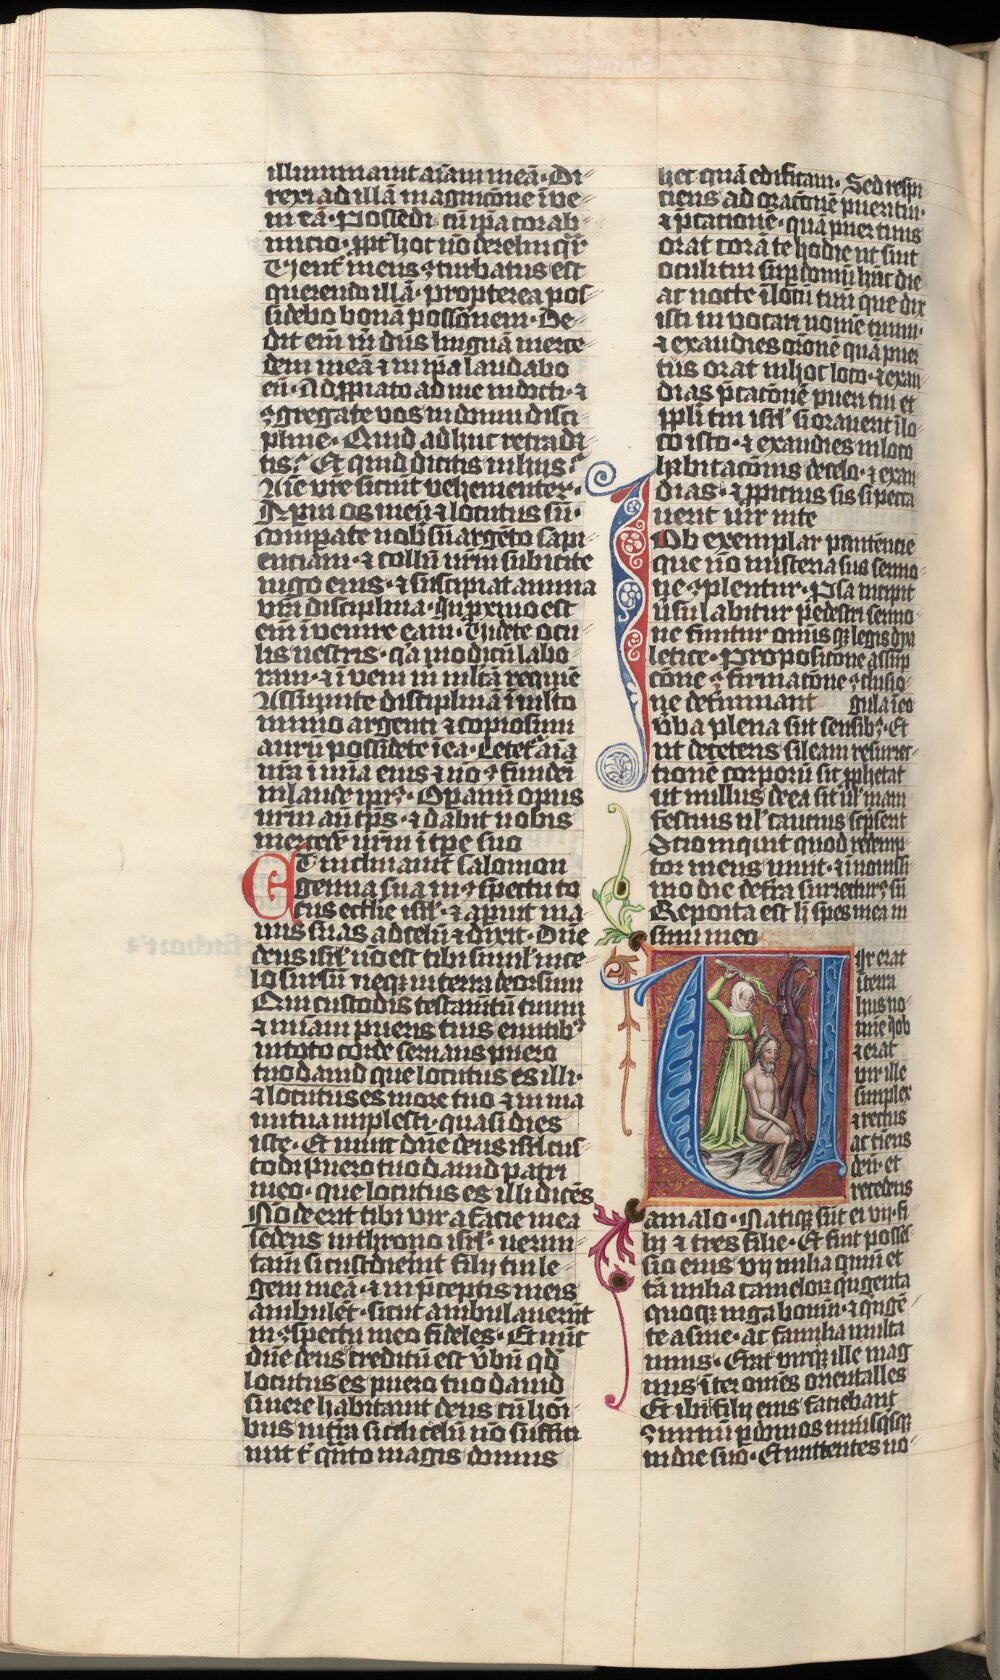 illuminauit aīam meā · Di-
rexi ad illā in agnicōne īue-
ni eā · Possedi cū ip̄a cor ab
inicio · ꝓpt̄ hoc nō derelinq̄r
Uent᷑ meus ꝯturbatus est
querendo illā · propterea pos-
sidebo bonā possōnem · De-
dit em̄ m̄ dn̄s linguā merce
dem meā ⁊ in ip̄a laudabo
eū · Appp̄iate ad me indocti · ⁊
ꝯgregate vos in domū disci
pline · Quid adhuc retrada
tis? Et quid dicitis in hijs?
Aīe vr̄e siciūt vehementer ·
Aperui os meū ⁊ locutus sū ·
comparate uob̄ sn̄ argēto sapi
enciam · ⁊ collū vr̄m subicite
iugo eius · ⁊ suscipiat anima
vr̄a disciplinā · In ꝓximo est
em̄ īvenire eam · Uidete ocu
lis uestris · q̄a modicū labo
raui · ⁊ īveni m̄ multā requiē
Assumite disciplinā ī mlto
numo argenti ⁊ copiosum
aurū possidete ī ea · Letet᷑ aīa
vr̄a ī mīa eius ⁊ nō ꝯfundei
in laude ip̄ius · Opamī opus
vr̄m an̄ tp̄s · ⁊ dabit uobis
mercedē vr̄m ī tp̄e suo
ET inclinauit salomon
genua sua in ꝯspectu to
cius ecctīe isrl̄ · ⁊ apuit ma
nus suas ad celū ⁊ dixit · Dn̄e
deus isrl̄ nō est tibi simil̄ in ce
lo sursū neqꝫ in terra deorsum
Qui custodis testamtū tuum
⁊ mīam pueris tuis eūntibꝫ
in toto corde seruans puero
tuo dauid que locutus es illi ·
⁊ locutus es in ore tuo ⁊ in ma
nu tua implesti · quasi dies
iste · Et nunc dn̄e deus isrl̄ cus
todi puero tuo dauid patri
meo · que locutus es illi dicēs
Nō deerit tibi vir a facie mea
sedens in throno isrl̄ · uerum
tam̄ si custodierīt filij tui le
gem meā · ⁊ in p̄ceptis meis
ambulēt · sicut ambulauerūt
in ꝯspectu meo fideles · Et nūc
dn̄e deus creditū est v̄bū qd̄
locutus es puero tuo dauid
Siuere habitauit deus cū hoī
bus in t̄ra si celi celū nō suffici
unt t̄ q̄nto magis domus
hec quā edificaui · Sed respi-
ciens ad oracōnē pueri tui ·
⁊ p̄cationē · quā puer tuus
orat corā te hodie ut sint
oculi tui sup̄ domū hāc die
ac nocte ī locū tuū que dix
isti īuocari nomē tuum ·
⁊ exaudies orōnē quā puer
tuus orat in hoc loco · ⁊ exau-
dias p̄cacōnē pueri tui et
pp̄li tui isrl̄ si orauerit ī lo
co isto · ⁊ exaudies in loco
habitacōnis de celo · ⁊ exau
dias · ⁊ ꝓpicius sis si pecca
uerit vir in te
IOb exemplar paciēncie
que nō misteria suo sermo
ne ꝯplentur · P̄sa incipit
v̄su labitur pedestri sermo-
ne finitur omnis qꝫ legis dya
letice · Proposicōne assūp
cōne ꝯfirmacōne ꝯclusio-
ne determinant gula ieo
v̄ba plena sūt sensibꝫ · Et
ut de ceteris sileam resurrec-
tionē corporū sic ꝓphetat
ut nullus de ea sit ul̄ mani
festius ul̄ caucius scp̄serit
Scio inquit quod redemp
tor meus uiuit · ⁊ ī nouissi
mo die de t̄ra surrecturꝯ sū
Reposita est h̄ spes mea in
sinu meo
VIr erat
ī terra
hus no-
mīe iob
⁊ erat
vir ille
simplex
⁊ rectus
ac tīens
deū · et
recedens
a malo · Natiqꝫ sūt ei vij · fi
lij ⁊ tres filie · Et fuit posses-
sio eius vij milia quiū et
tā milia cameloꝝ q̄ngenta
quoqꝫ iuga boum · ⁊ q̄ngē-
te asine · ac familia multa
nimis · Erat virqꝫ ille mag
nus īter om̄es orientalles
Et ibāt filij eius faciebant
ꝯuiuiū p̄ domos unusqꝫqꝫ
in die suo · Et mittentes uo-